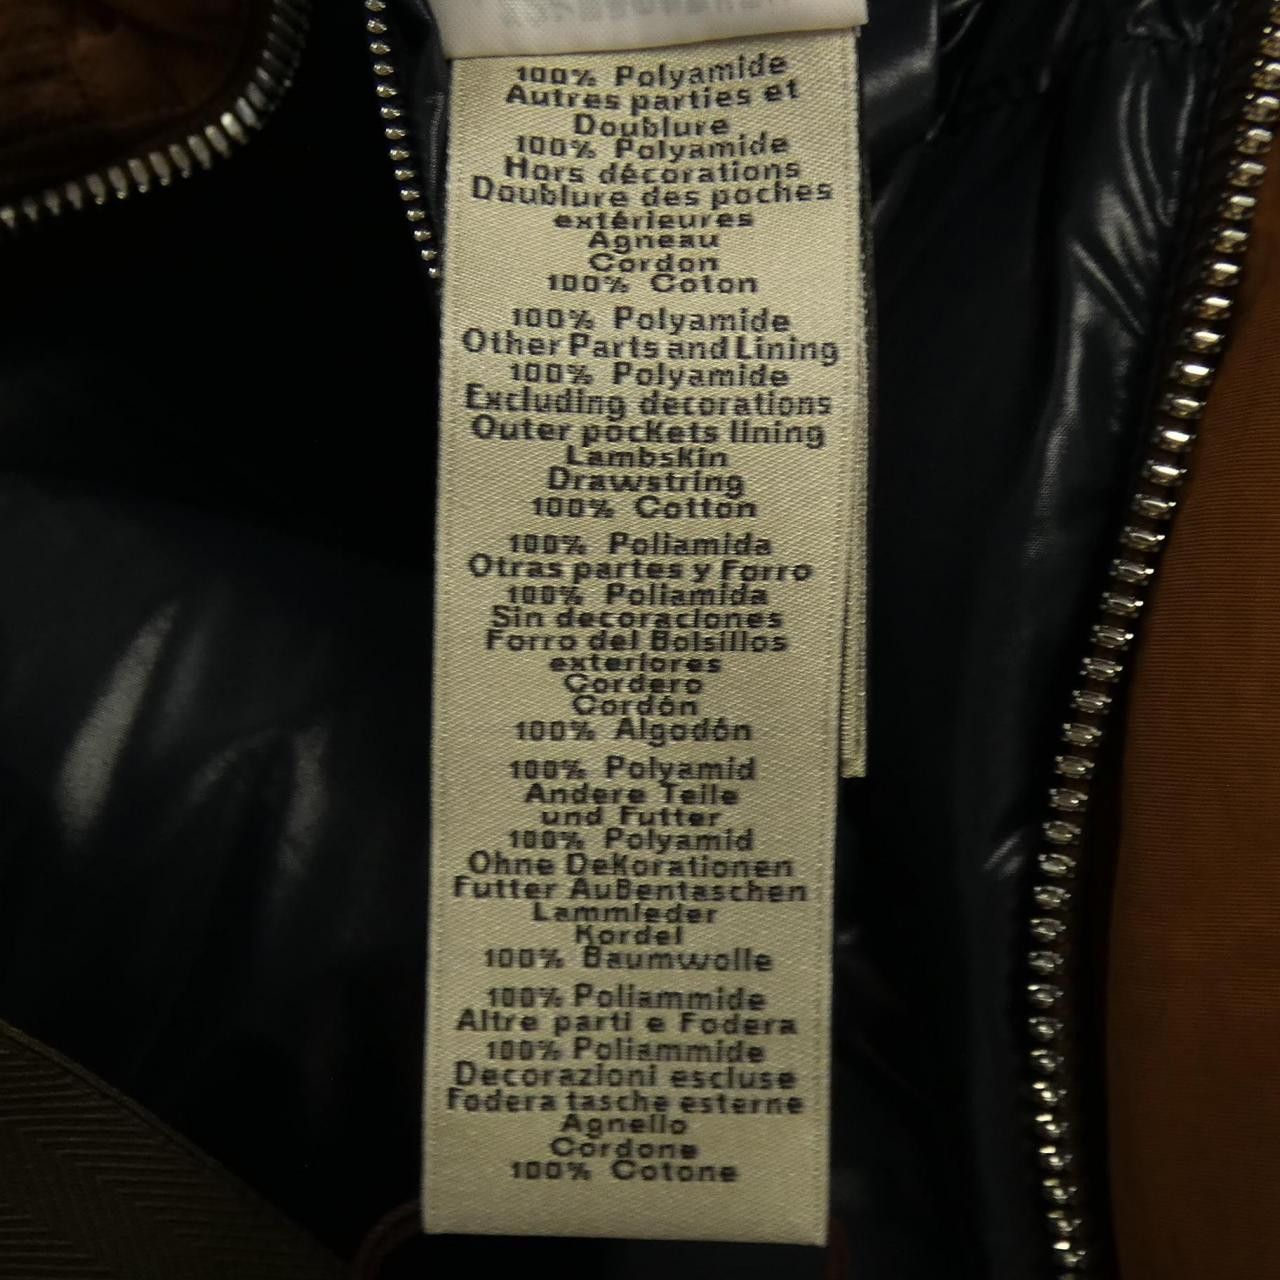 100% Polyamide
Autres parties et
Doublure
100% Polyamide
Hors décorations
Doublure des poches
extérieures
Agneau
Cordon
100% Coton
100% Polyamide
Other Parts and Lining
100% Polyamide
Excluding decorations
Outer pockets lining
Lambskin
Drawstring
100% Cotton
100% Poliamida
Otras partes y Forro
100% Poliamida
Sin decoraciones
Forro del Bolsillos
exteriores
Cordero
Cordón
100% Algodón
100% Polyamid
Andere Teile
und Futter
100% Polyamid
Ohne Dekorationen
Futter Außentaschen
Lammleder
Kordel
100% Baumwolle
100% Poliammide
Altre parti e Fodera
100% Poliammide
Decorazioni escluse
Fodera tasche esterne
Agnello
Cordone
100% Cotone